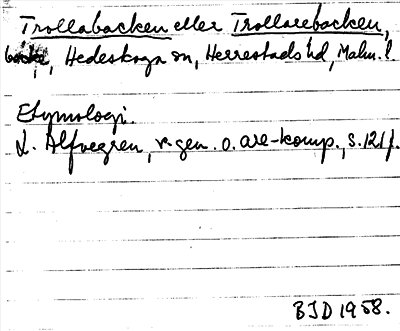 Trollabacken eller Trollarebacken,
backe, Hedeskoga sn, Herrestads hd, Malm. l.
Etymologi.
L. Alfvegren, r-gen. o. are-komp., s. 121 f.
BJD 1958.